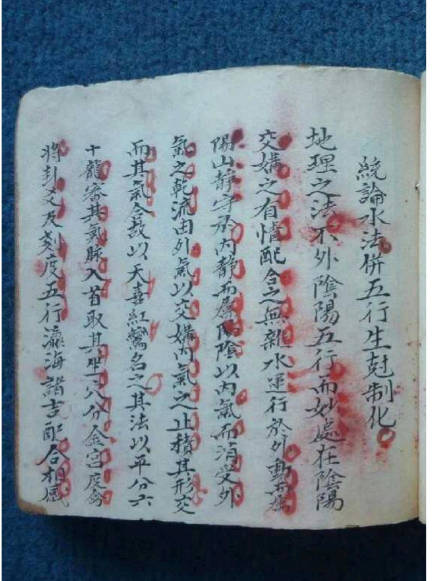 統論水法併五行生尅制化
地理之法不外陰陽五行而妙處在陰陽
交媾之有情配合之無雜水運行於外動而為
陽山靜守於內靜而屬陰以內氣而消受外
氣之乾流由外氣以交媾內氣之止積其形交
而其氣合故以天喜紅鸞名之其法以平分六
十龍審其氣脉入首取其坐穴分金宮度
將卦爻及刻度五行瀛海諸吉配合相感